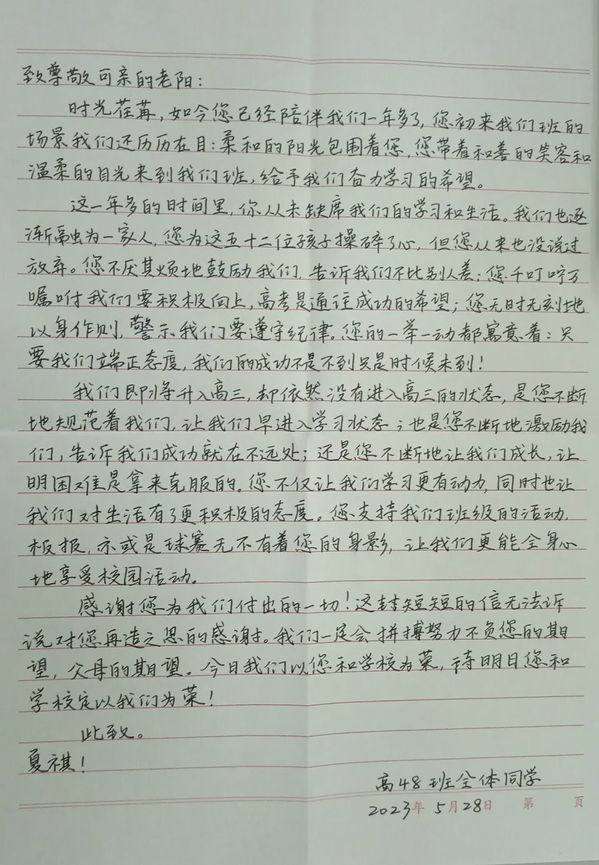 致尊敬可亲的老阳：
时光荏苒，如今您已经陪伴我们一年多了，您初来我们班的
场景我们还历历在目：柔和的阳光包围着您，您带着和善的笑容和
温柔的目光来到我们班，给予我们奋力学习的希望。
这一年多的时间里，你从未缺席我们的学习和生活。我们也逐
渐融为一家人，您为这五十二位孩子操碎了心，但您从来也没说过
放弃。您不厌其烦地鼓励我们，告诉我们不比别人差；您千叮咛万
嘱咐我们要积极向上，高考是通往成功的希望；您无时无刻地
以身作则，警示我们要遵守纪律。您的一举一动都寓意着：只
要我们端正态度，我们的成功不是不到只是时候未到！
我们即将升入高三，却依然没有进入高三的状态，是您不断
地规范着我们，让我们早进入学习状态；也是您不断地激励我
们，告诉我们成功就在不远处；还是您不断地让我们成长，让
明困难是拿来克服的。您不仅让我们学习更有动力，同时也让
我们对生活有了更积极的态度。您支持我们班级的活动，
板报，亦或是球赛无不有着您的身影，让我们更能全身心
地享受校园活动。
感谢您为我们付出的一切！这封短短的信无法诉
说对您再造之恩的感谢。我们一定会拼搏努力不负您的期
望，父母的期望。今日我们以您和学校为荣，待明日您和
学校定以我们为荣！
此致。
夏祺！
高48班全体同学
2023年 5月28日 第 页